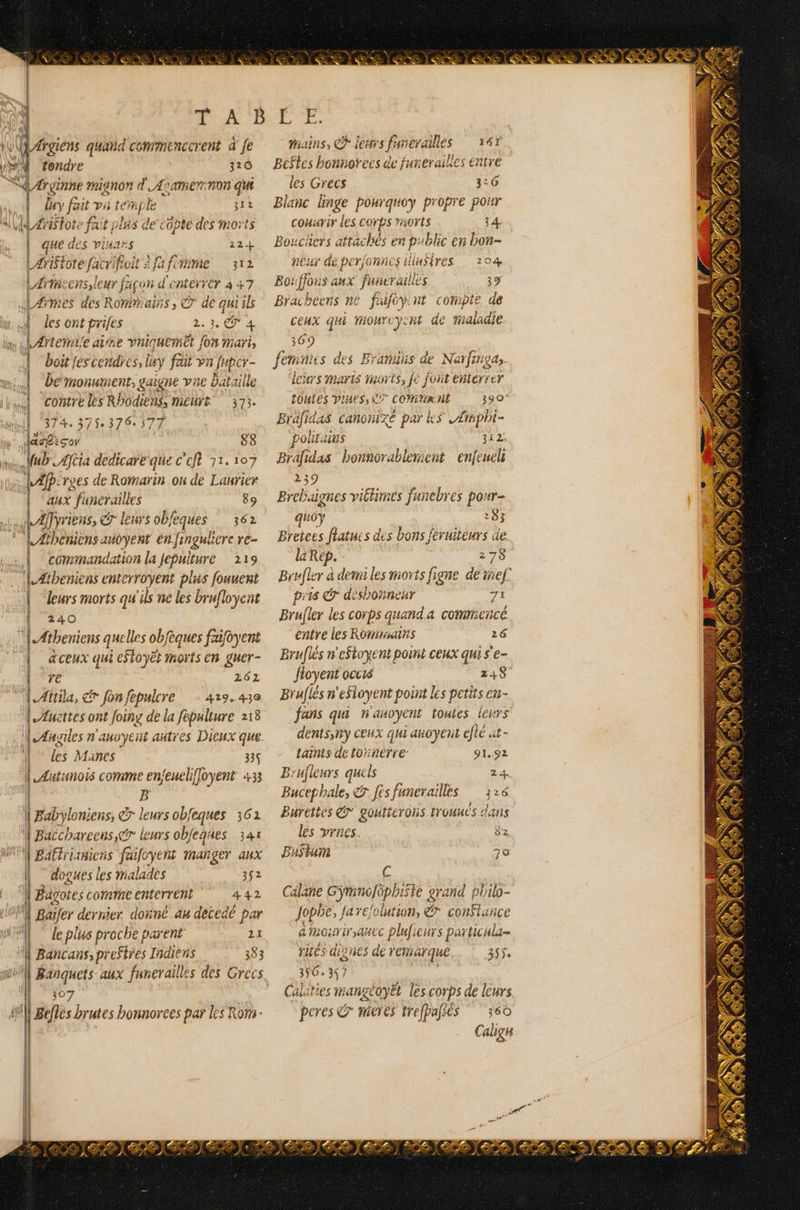 TABLE.
Argiens quand commencerent à se
tondre 320
Arginne mignon d'Agamemnon qui
luy fait vn temple 312
Aristote fait plus de cõpte des morts
que des viuans 224
Aristote sacrifioit à sa femme 312
Armeens, leur façon d'enterrer 447
Armes des Rommains, & de qui ils
les ont prises 2. 3. & 4
Artemise aime vniquemẽt son mari,
boit ses cendres, luy fait vn super-
be monument, gaigne vne bataille
contre les Rhodiens, meurt 373.
374. 375. 376. 377
88
sub Ascia dedicare que c'est 71. 107
Asperges de Romarin ou de Laurier
aux funerailles 89
Assyriens, & leurs obseques 362
Atheniens auoyent en singuliere re-
commandation la sepulture 219
Atheniens enterroyent plus souuent
leurs morts qu'ils ne les brusloyent
240
Atheniens quelles obseques faisoyent
à ceux qui estoyẽt morts en guer-
re 262
Attila, & son sepulcre 429. 430
Auettes ont soing de la sepulture 218
Augiles n'auoyent autres Dieux que
les Manes 335
Autunois comme enseuelissoyent 433
B
Babyloniens, & leurs obseques 362
Baccharcens, & leurs obseques 341
Battrianiens faisoyent manger aux
dogues les malades 352
Bagotes comme enterrent 442
Baiser dernier donné au decedé par
le plus proche parent 21
Bancans, prestres Indiens 383
Banquets aux funerailles des Grecs
307
Bestes brutes honnorees par les Rom-
mains, & leurs funerailles 161
Bestes honnorees de funerailles entre
les Grecs 326
Blanc linge pourquoy propre pour
couurir les corps morts 34
Boucliers attachés en public en hon-
neur de personnes illustres 204
Bouffons aux funerailles 39
Bracheens ne faisoyent compte de
ceux qui mouroyent de maladie
369
femmes des Bramins de Narsinga,
leurs maris morts, se font enterrer
toutes viues, & comment 390
Brasidas canonizé par les Amphi-
politains 312
Brasidas honnorablement enseueli
239
Brehaignes victimes funebres pour-
quoy 283
Bretees statues des bons seruiteurs de
la Rep. 278
Brusler à demi les morts signe de mes-
pris & deshonneur 71
Brusler les corps quand a commencé
entre les Rommains 26
Bruslés n'estoyent point ceux qui s'e-
stoyent occis 248
Bruslés n'estoyent point les petits en-
fans qui n'auoyent toutes leurs
dents, ny ceux qui auoyent esté at-
taints de tonnerre 91. 92
Brusleurs quels 24
Bucephale, & ses funerailles 326
Burettes & goutterons trouués dans
les vrnes 82
Bustum 70
C
Calane Gymnosophiste grand philo-
sophe, sa resolution, & constance
à mourir, auec plusieurs particula-
rités dignes de remarque 355.
356. 357
Calaties mangeoyẽt les corps de leurs
peres & meres trespassés 360
Caligu